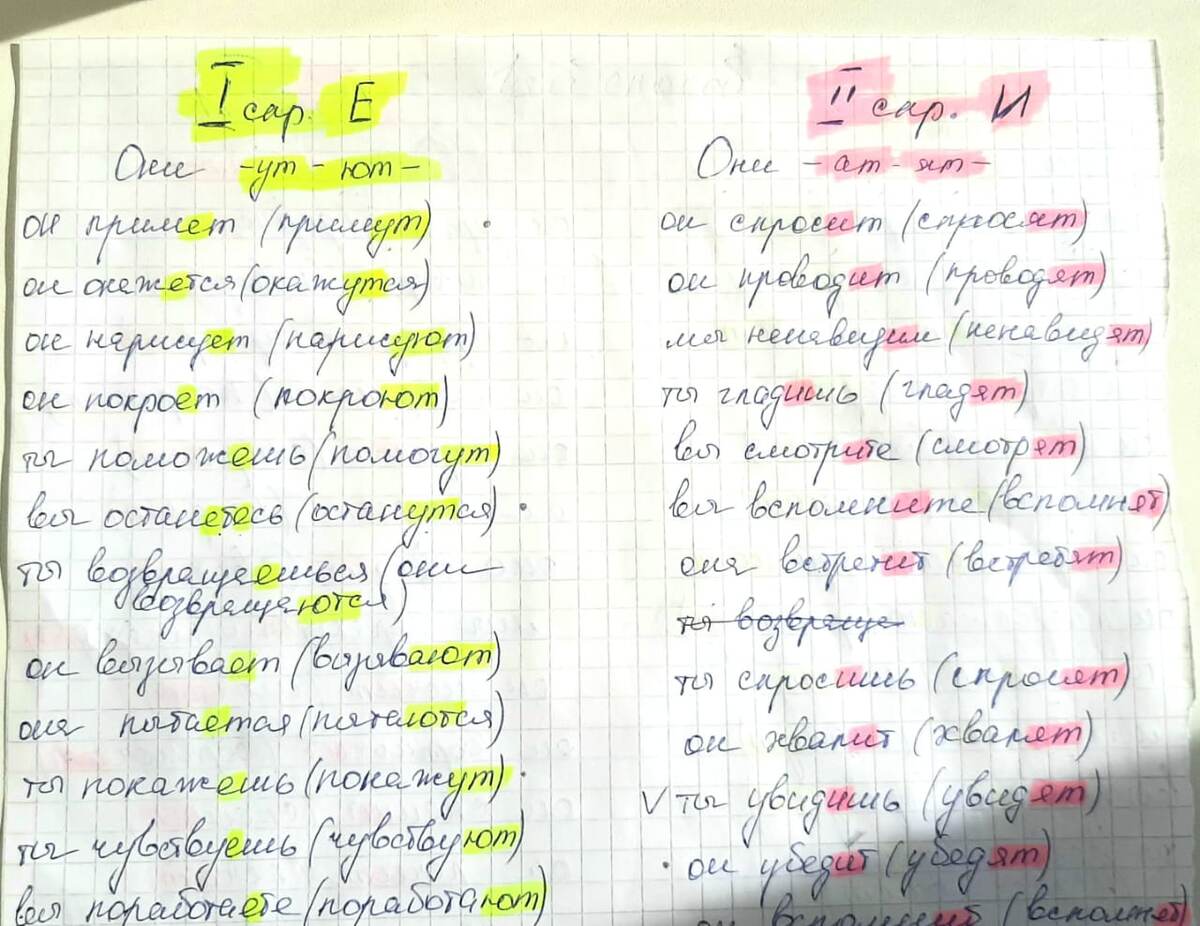 I спр. Е
Они -ут - ют-
он примет (примут)
он окажется (окажутся)
он нарисует (нарисуют)
он покроет (покроют)
ты поможешь (помогут)
вы останетесь (останутся)
ты возвращаешься (они
возвращаются)
он вызывает (вызывают)
она пытается (пытаются)
ты покажешь (покажут)
ты чувствуешь (чувствуют)
вы поработаете (поработают)
II спр. И
Они -ат- ят-
он спросит (спросят)
он проводит (проводят)
мы ненавидим (ненавидят)
ты гладишь (гладят)
вы смотрите (смотрят)
вы вспомните (вспомнят)
она встретит (встретят)
ты возвраще
ты спросишь (спросят)
он хвалит (хвалят)
V ты увидишь (увидят)
он убедит (убедят)
он вспомнит (вспомнят)